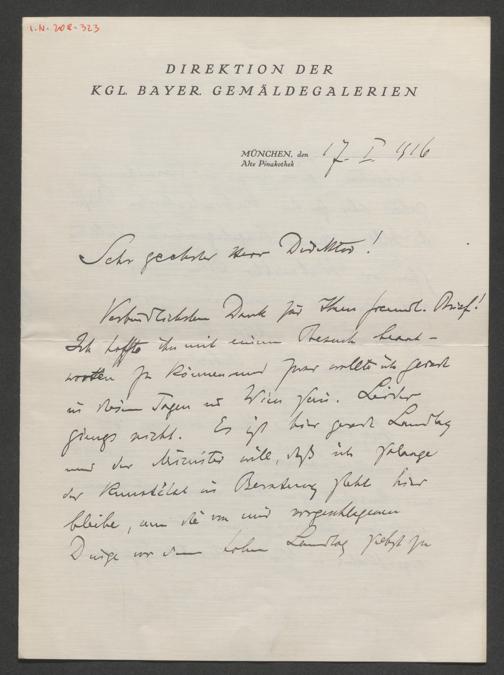 I.N. 208.323
DIREKTION DER
KGL. BAYER. GEMÄLDEGALERIEN
MÜNCHEN, den 17. I 1916
Alte Pinakothek
Sehr geehrter Herr Direktor!
Verbindlichsten Dank für Ihren freundl. Brief!
Ich hoffte ihn mit einem Besuch beant-
worten zu können und zwar wollte ich gerade
in diesen Tagen in Wien sein. Leider
gings nicht. Es ist hier gerade Landtag
und der Minister will, daß ich solange
der Kunstetat in Beratung steht hier
bleibe, um die von mir vorgeschlagenen
Dinge vor dem hohen Landtag selbst zu